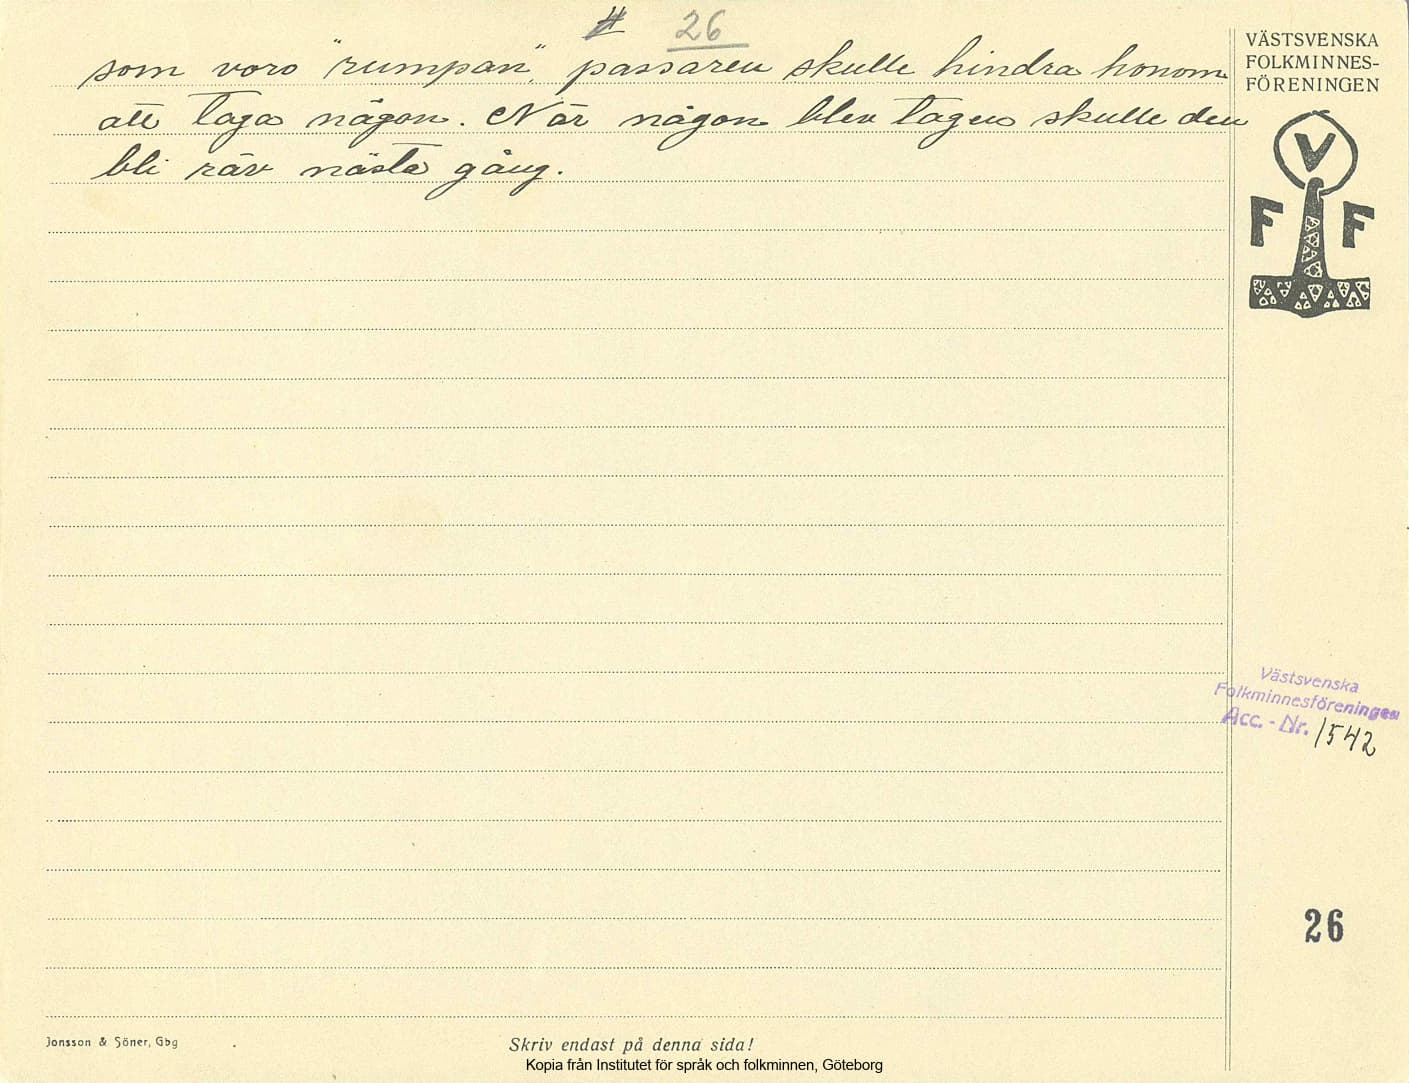 26
som voro "rumpan", passaren skulle hindra honom
att taga någon. När någon blev tagen skulle den
bli räv nästa gång.
VÄSTSVENSKA
FOLKMINNES-
FÖRENINGEN
V
F F
Västsvenska
Folkminnesföreningen
Acc. - Nr. 1542
26
Jonsson & Söner, Gbg
Skriv endast på denna sida!
Kopia från Institutet för språk och folkminnen, Göteborg